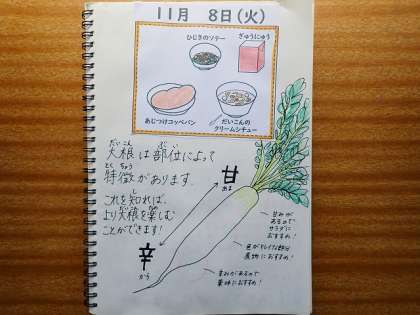 11月 8日(火)
ひじきのソテー
ぎゅうにゅう
あじつけコッペパン
だいこんの
クリームシチュー
だいこん ぶい
大根は部位によって
とくちょう
特徴があります。
し
これを知れば、
より大根を楽しむ
ことができます!
甘
あま
辛
から
甘みが
あるので
サラダに
おすすめ!
色がキレイな部分
煮物におすすめ!
辛みがあるので
薬味におすすめ!